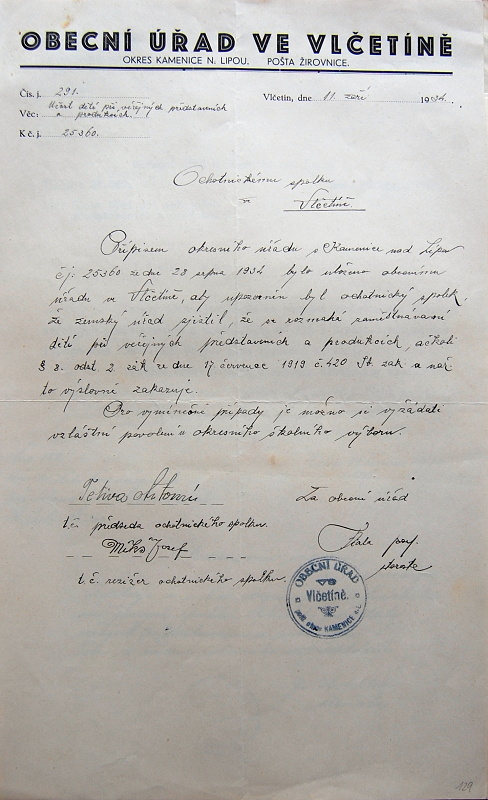 OBECNÍ ÚŘAD VE VLČETÍNĚ
OKRES KAMENICE N. LIPOU. POŠTA ŽIROVNICE.
Čís. j. 291.
Vlčetín, dne 11. září 1934.
Věc: Účast dětí při veřejných představeních
a produkcích.
K č j. 25360.
Ochotnickému spolku
v
Vlčetíně.
Přípisem okresního úřadu v Kamenici nad Lipou
čj: 25360 ze dne 28 srpna 1934 bylo uloženo obecnímu
úřadu ve Vlčetíně, aby upozorněn byl ochotnický spolek,
že zemský úřad zjistil, že se rozmáhá zaměstnávání
dětí při veřejných představeních a produkcích, ačkoli
§ 8. odst 2. zák ze dne 17 července 1919 č. 420 Sb. zak a nař
to výslovně zakazuje.
Pro výminečné případy je možno si vyžádati
zvláštní povolení u okresního školního výboru.
Tetiva Antonín
Za obecní úřad
t.č. předseda ochotnického spolku.
Mikš Josef
starosta
t. č. režizér ochotnického spolku.
OBECNÍ ÚŘAD
ve
Vlčetíně.
KAMENICE n. L.
129